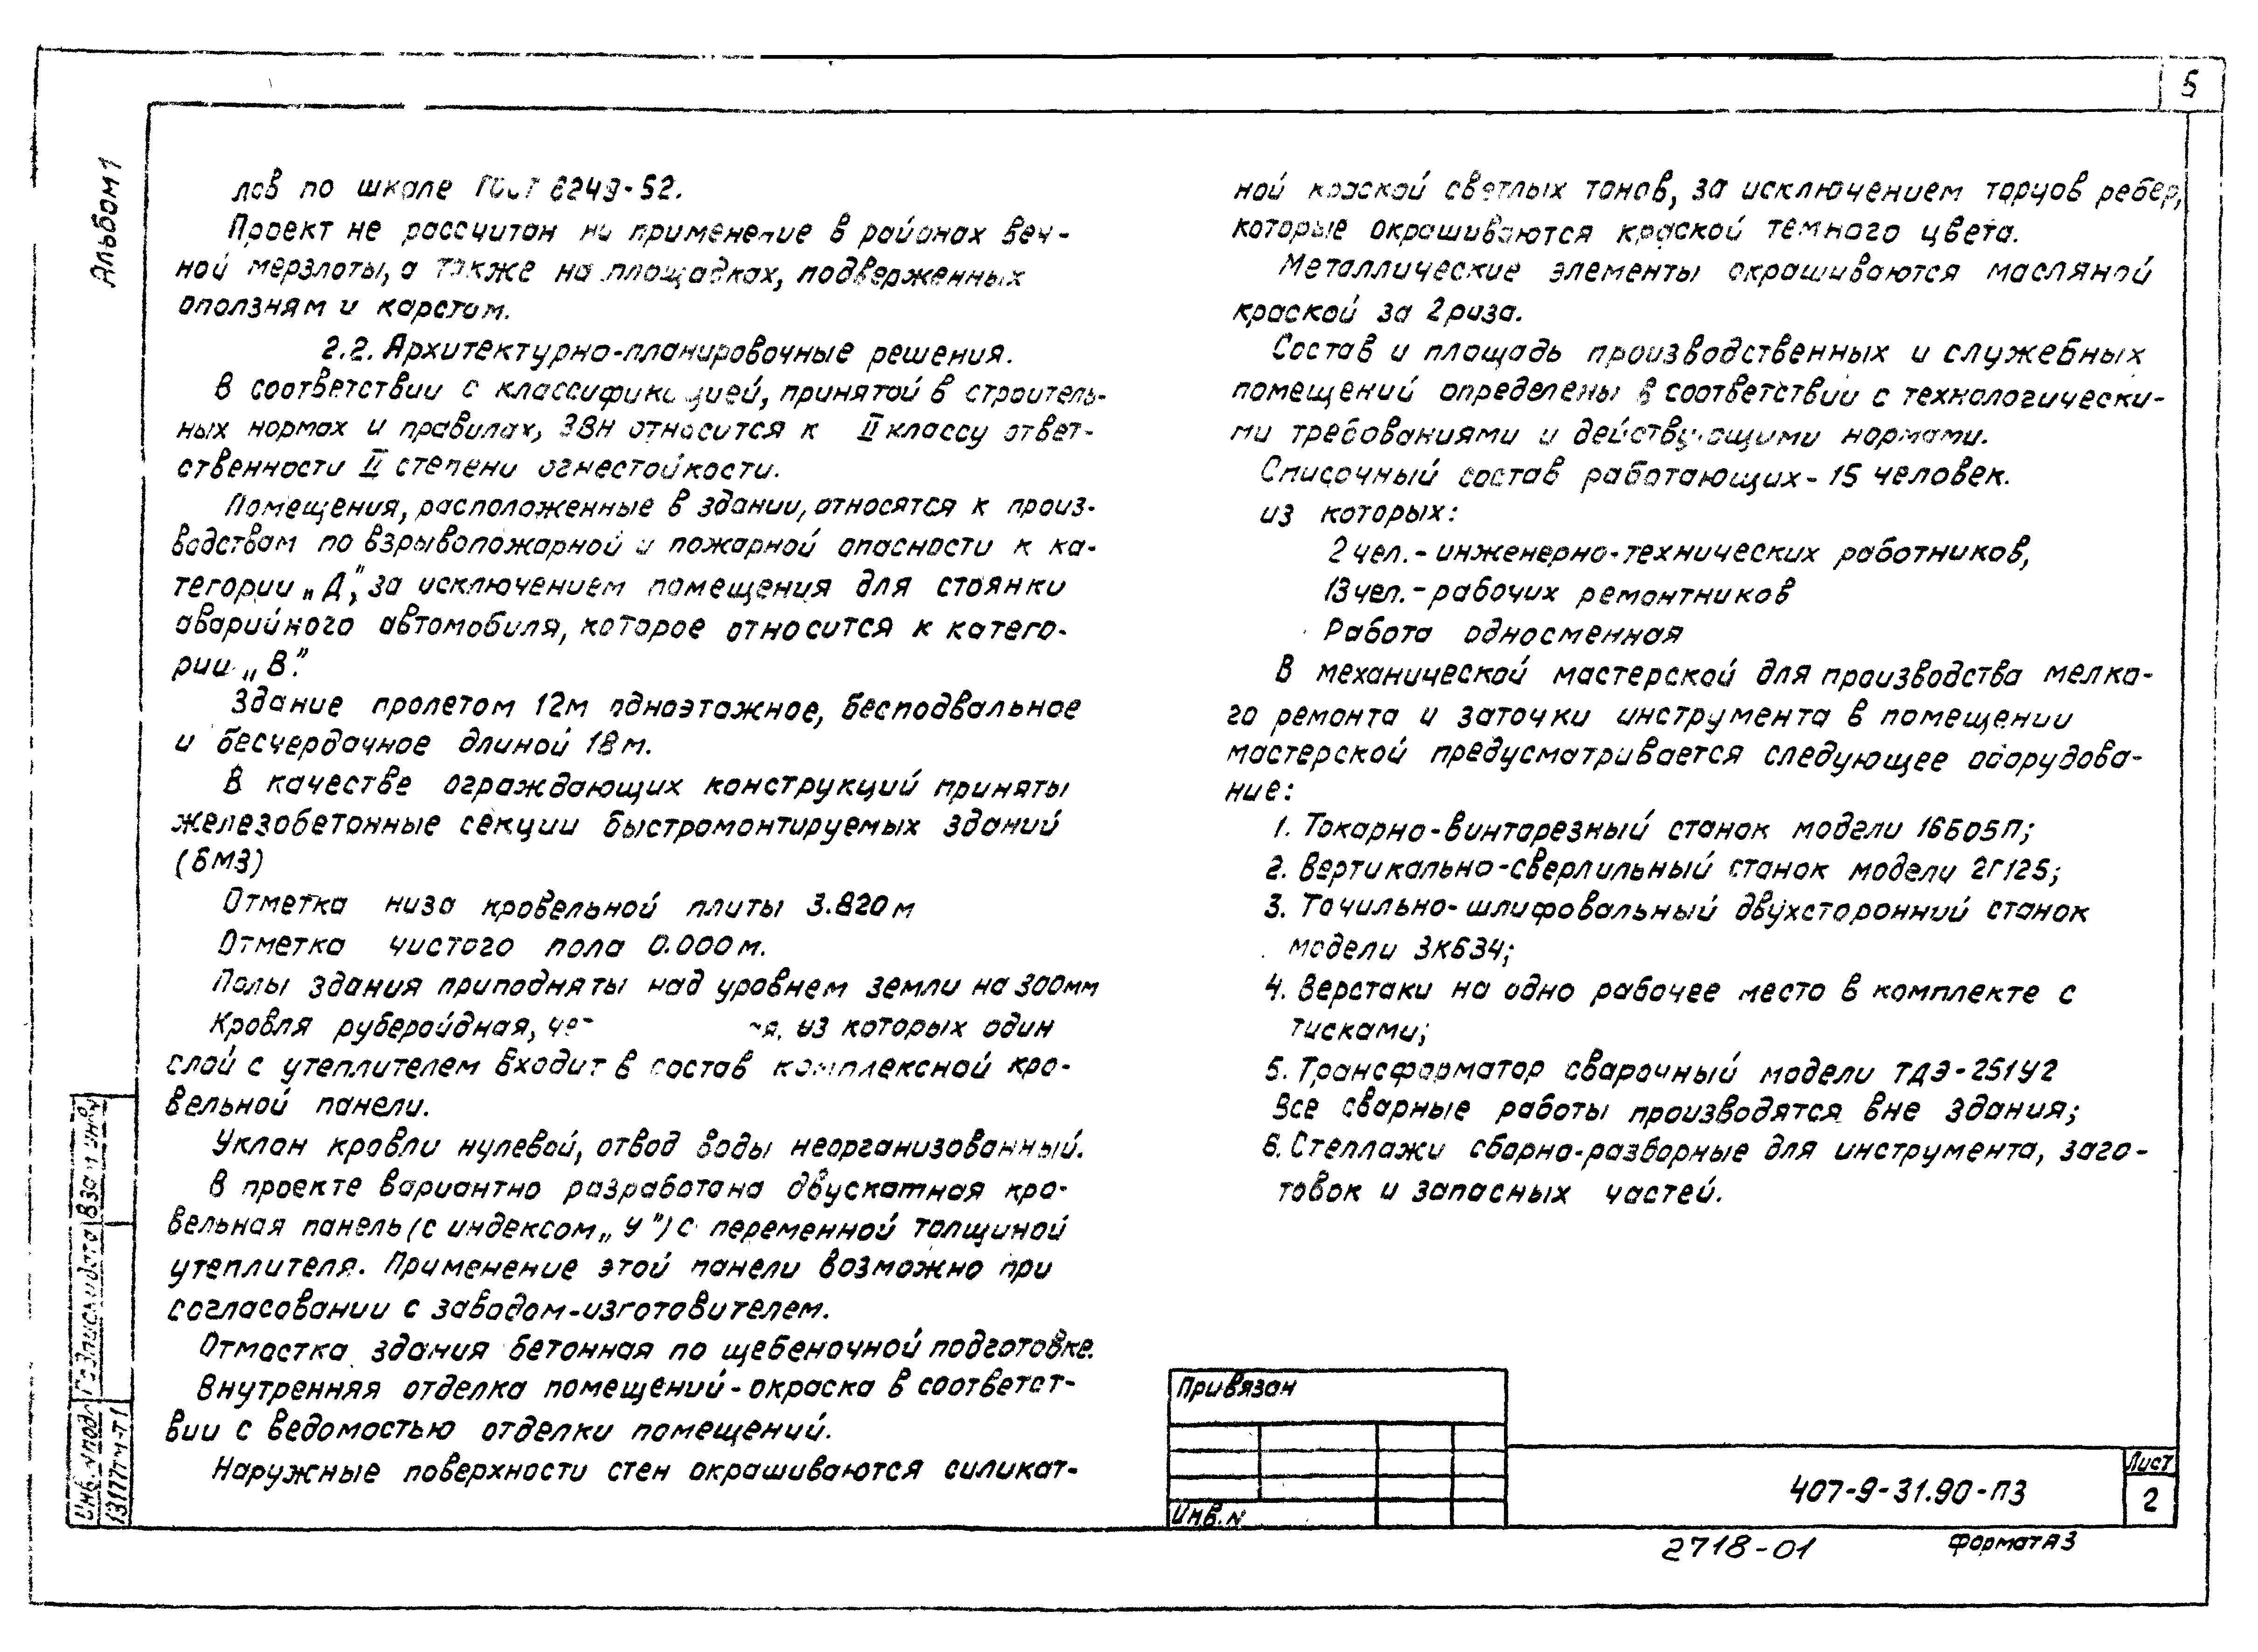 5
Альбом 1
лов по шкале ГОСТ 6249-52.
Проект не рассчитан на применение в районах веч-
ной мерзлоты, а также на площадках, подверженных
оползням и карстам.
2.2. Архитектурно-планировочные решения.
В соответствии с классификацией, принятой в строитель-
ных нормах и правилах, ЗВН относится к II классу ответ-
ственности II степени огнестойкости.
Помещения, расположенные в здании, относятся к произ-
водствам по взрывопожарной и пожарной опасности к ка-
тегории „Д", за исключением помещения для стоянки
аварийного автомобиля, которое относится к катего-
рии „В".
Здание пролетом 12м одноэтажное, бесподвальное
и бесчердачное длиной 18м.
В качестве ограждающих конструкций приняты
железобетонные секции быстромонтируемых зданий
(БМЗ)
Отметка низа кровельной плиты 3.820м
Отметка чистого пола 0.000м.
Полы здания приподняты над уровнем земли на 300мм
Кровля рубероидная, из которых один
слой с утеплителем входит в состав комплексной кро-
вельной панели.
Уклон кровли нулевой, отвод воды неорганизованный.
В проекте вариантно разработана двускатная кро-
вельная панель (с индексом „У") с переменной толщиной
утеплителя. Применение этой панели возможно при
согласовании с заводом-изготовителем.
Отмостка здания бетонная по щебеночной подготовке.
Внутренняя отделка помещений - окраска в соответст-
вии с ведомостью отделки помещений.
Наружные поверхности стен окрашиваются силикат-
ной краской светлых тонов, за исключением торцов ребер,
которые окрашиваются краской темного цвета.
Металлические элементы окрашиваются масляной
краской за 2 раза.
Состав и площадь производственных и служебных
помещений определены в соответствии с технологически-
ми требованиями и действующими нормами.
Списочный состав работающих - 15 человек.
из которых:
2 чел. - инженерно-технических работников,
13 чел. - рабочих ремонтников
Работа односменная
В механической мастерской для производства мелко-
го ремонта и заточки инструмента в помещении
мастерской предусматривается следующее оборудова-
ние:
1. Токарно-винторезный станок модели 16Б05П;
2. Вертикально-сверлильный станок модели 2Г125;
3. Точильно-шлифовальный двухсторонний станок
модели 3К634;
4. Верстаки на одно рабочее место в комплекте с
тисками;
5. Трансформатор сварочный модели ТДЭ-251У2
Все сварные работы производятся вне здания;
6. Стеллажи сборно-разборные для инструмента, заго-
товок и запасных частей.
Привязан
Инв. N
407-9-31.90-ПЗ
Лист
2
2718-01
Формат А3
Инв. N подл
13177тм-т1
Подпись и дата
Взам инв N